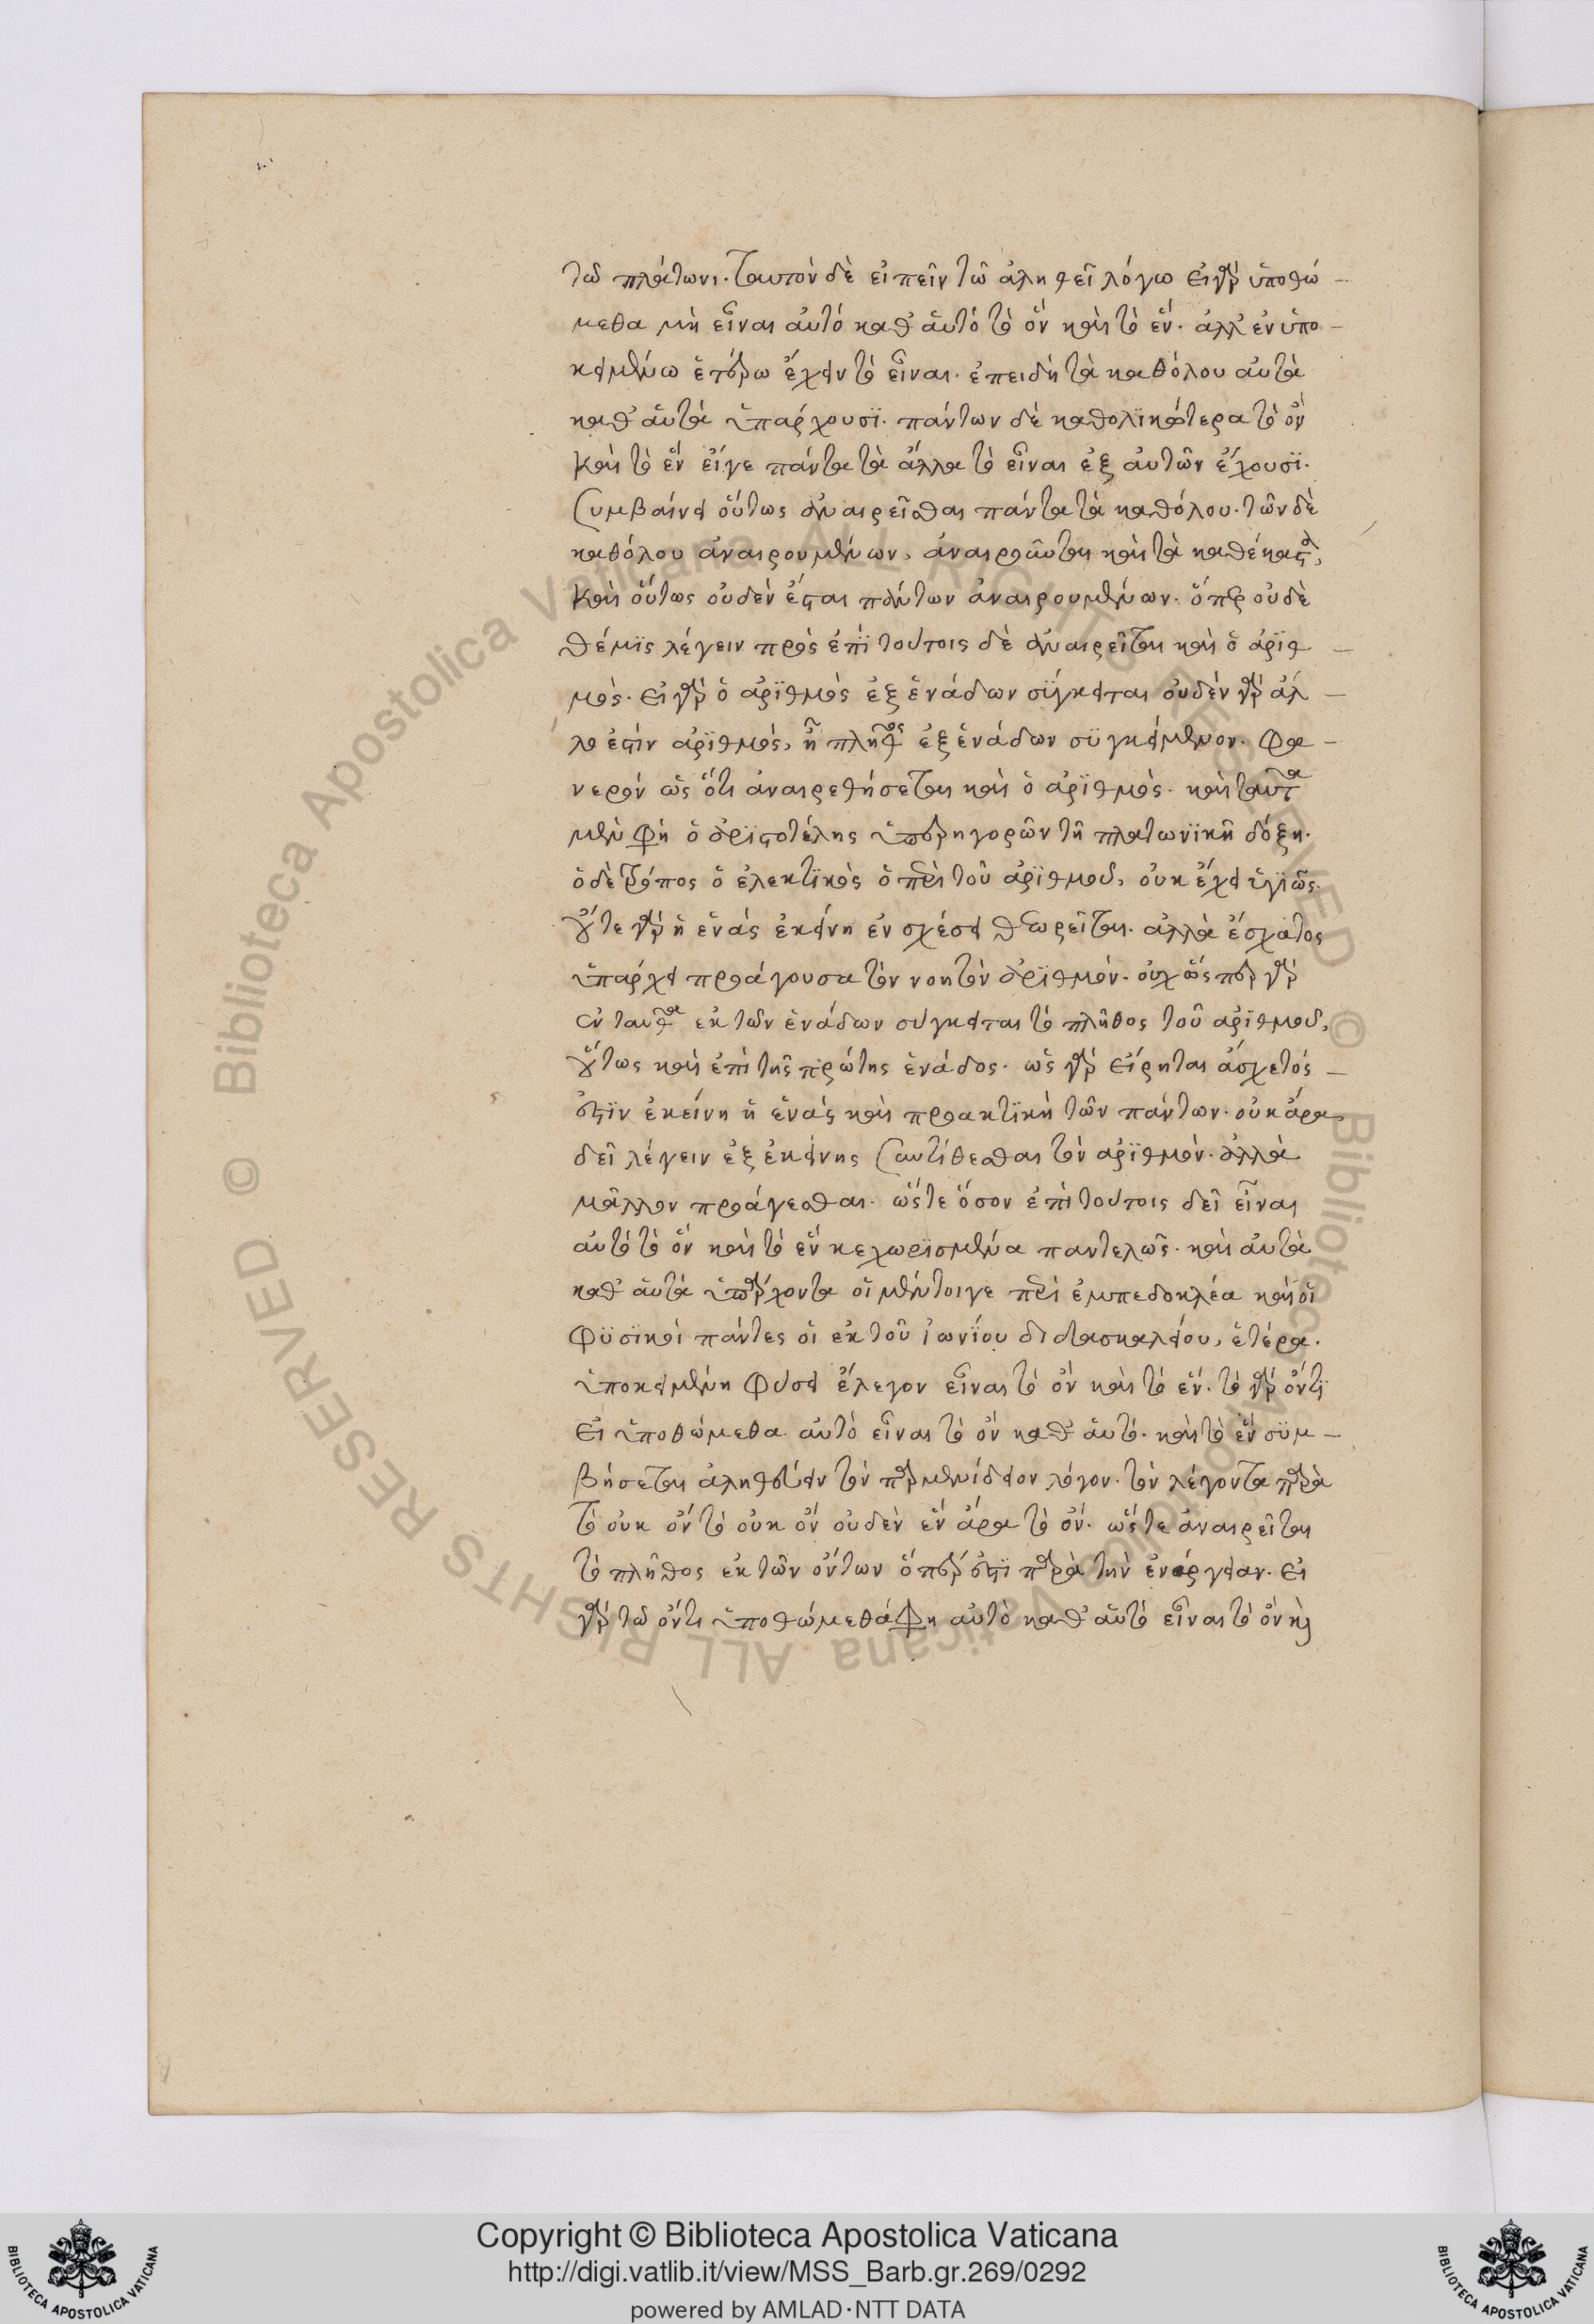 τῶ πλάτωνι. ταυτὸν δὲ εἰπεῖν τῶ ἀληθεῖ λόγω εἰ γὰρ ὑποθώ-
μεθα μὴ εἶναι αὐτό καθ' αὑτό τὸ ὄν καὶ τὸ ἕν. ἀλλ' ἐν ὑπο-
κειμένω ἑτέρω ἔχειν τὸ εἶναι. ἐπειδὴ τὰ καθόλου αὐτὰ
καθ' αὑτὰ ὑπάρχουσϊ. πάντων δὲ καθολϊκώτερα τὸ ὄν
καὶ τὸ ἕν εἴγε πάντα τὰ ἄλλα τὸ εἶναι ἐξ αὐτῶν ἔχουσϊ.
συμβαίνει οὕτως ἀναιρεῖσθαι πάντα τὰ καθόλου. τῶν δὲ
καθόλου ἀναιρουμένων, ἀναιροῦνται καὶ τὰ καθέκαστα,
καὶ οὕτως οὐδὲν ἔσται πάντων ἀναιρουμένων. ὅπερ οὐδὲ
θέμϊς λέγειν πρὸς ἐπὶ τούτοις δὲ ἀναιρεῖται καὶ ὁ ἀρϊθ-
μὸς. εἰ γὰρ ὁ ἀρϊθμὸς ἐξ ἑνάδων σϋγκειται οὐδὲν γὰρ ἀλ-
λο ἐστὶν ἀρϊθμὸς, ἢ πλῆθος ἐξ ἑνάδων σϋγκείμενον. φα-
νερὸν ὡς ὅτι ἀναιρεθήσεται καὶ ὁ ἀρϊθμὸς. καὶ ταῦτα
μὲν φὴ ὁ ἀρϊστοτέλης ὑπερηγορῶν τῆ πλατωνϊκῆ δόξη.
ὁ δὲ τρόπος ὁ ἐλεκτϊκὸς ὁ περὶ τοῦ ἀρϊθμοῦ, οὐκ ἔχει ὑγϊῶς.
οὔτε γὰρ ἡ ἑνάς ἐκείνη ἐν σχέσει θεωρεῖται. ἀλλὰ ἔσχατος
ὑπάρχει προάγουσα τὸν νοητὸν ἀρϊθμόν. οὐχ ὥς περ γὰρ
ἐνταῦθα ἐκ τῶν ἑνάδων σύγκειται τὸ πλῆθος τοῦ ἀρϊθμοῦ,
οὕτως καὶ ἐπὶ τῆς πρώτης ἑνάδος. ὡς γὰρ εἴρηται ἄσχετός-
ἐστϊν ἐκείνη ἡ ἑνάς καὶ προακτϊκὴ τῶν πάντων. οὐκ ἄρα
δεῖ λέγειν ἐξ ἐκείνης συντίθεσθαι τὸν ἀρϊθμόν. ἀλλὰ
μᾶλλον προάγεσθαι. ὥστε ὅσον ἐπὶ τούτοις δεῖ εἶναι
αὐτὸ τὸ ὄν καὶ τὸ ἕν κεχωρϊσμένα παντελῶς. καὶ αὐτὰ
καθ' αὑτὰ ὑπάρχοντα οἱ μέντοιγε περὶ ἐμπεδοκλέα καὶ οἱ
φϋσϊκοὶ πάντες οἱ ἐκ τοῦ ἰωνίου διδασκαλείου, ἑτέρα.
ὑποκειμένη φύσει ἔλεγον εἶναι τὸ ὄν καὶ τὸ ἕν. τὸ γὰρ ὄντϊ
εἰ ὑποθώμεθα αὐτὸ εἶναι τὸ ὄν καθ' αὑτό. καὶ τὸ ἕν σϋμ-
βήσεται ἀληθεύειν τὸν παρμενίδειον λόγον. τὸν λέγοντα παρὰ
τὸ οὐκ ὄν τὸ οὐκ ὄν οὐδὲν ἕν ἄρα τὸ ὄν. ὥστε ἀναιρεῖται
τὸ πλῆθος ἐκ τῶν ὄντων ὅπερ ἐστϊ παρὰ τὴν ἐνάργειαν. εἰ
γὰρ τῶ ὄντι ὑποθώμεθά φη αὐτὸ καθ' αὑτὸ εἶναι τὸ ὄν καὶ
Copyright © Biblioteca Apostolica Vaticana
http://digi.vatlib.it/view/MSS_Barb.gr.269/0292
powered by AMLAD·NTT DATA